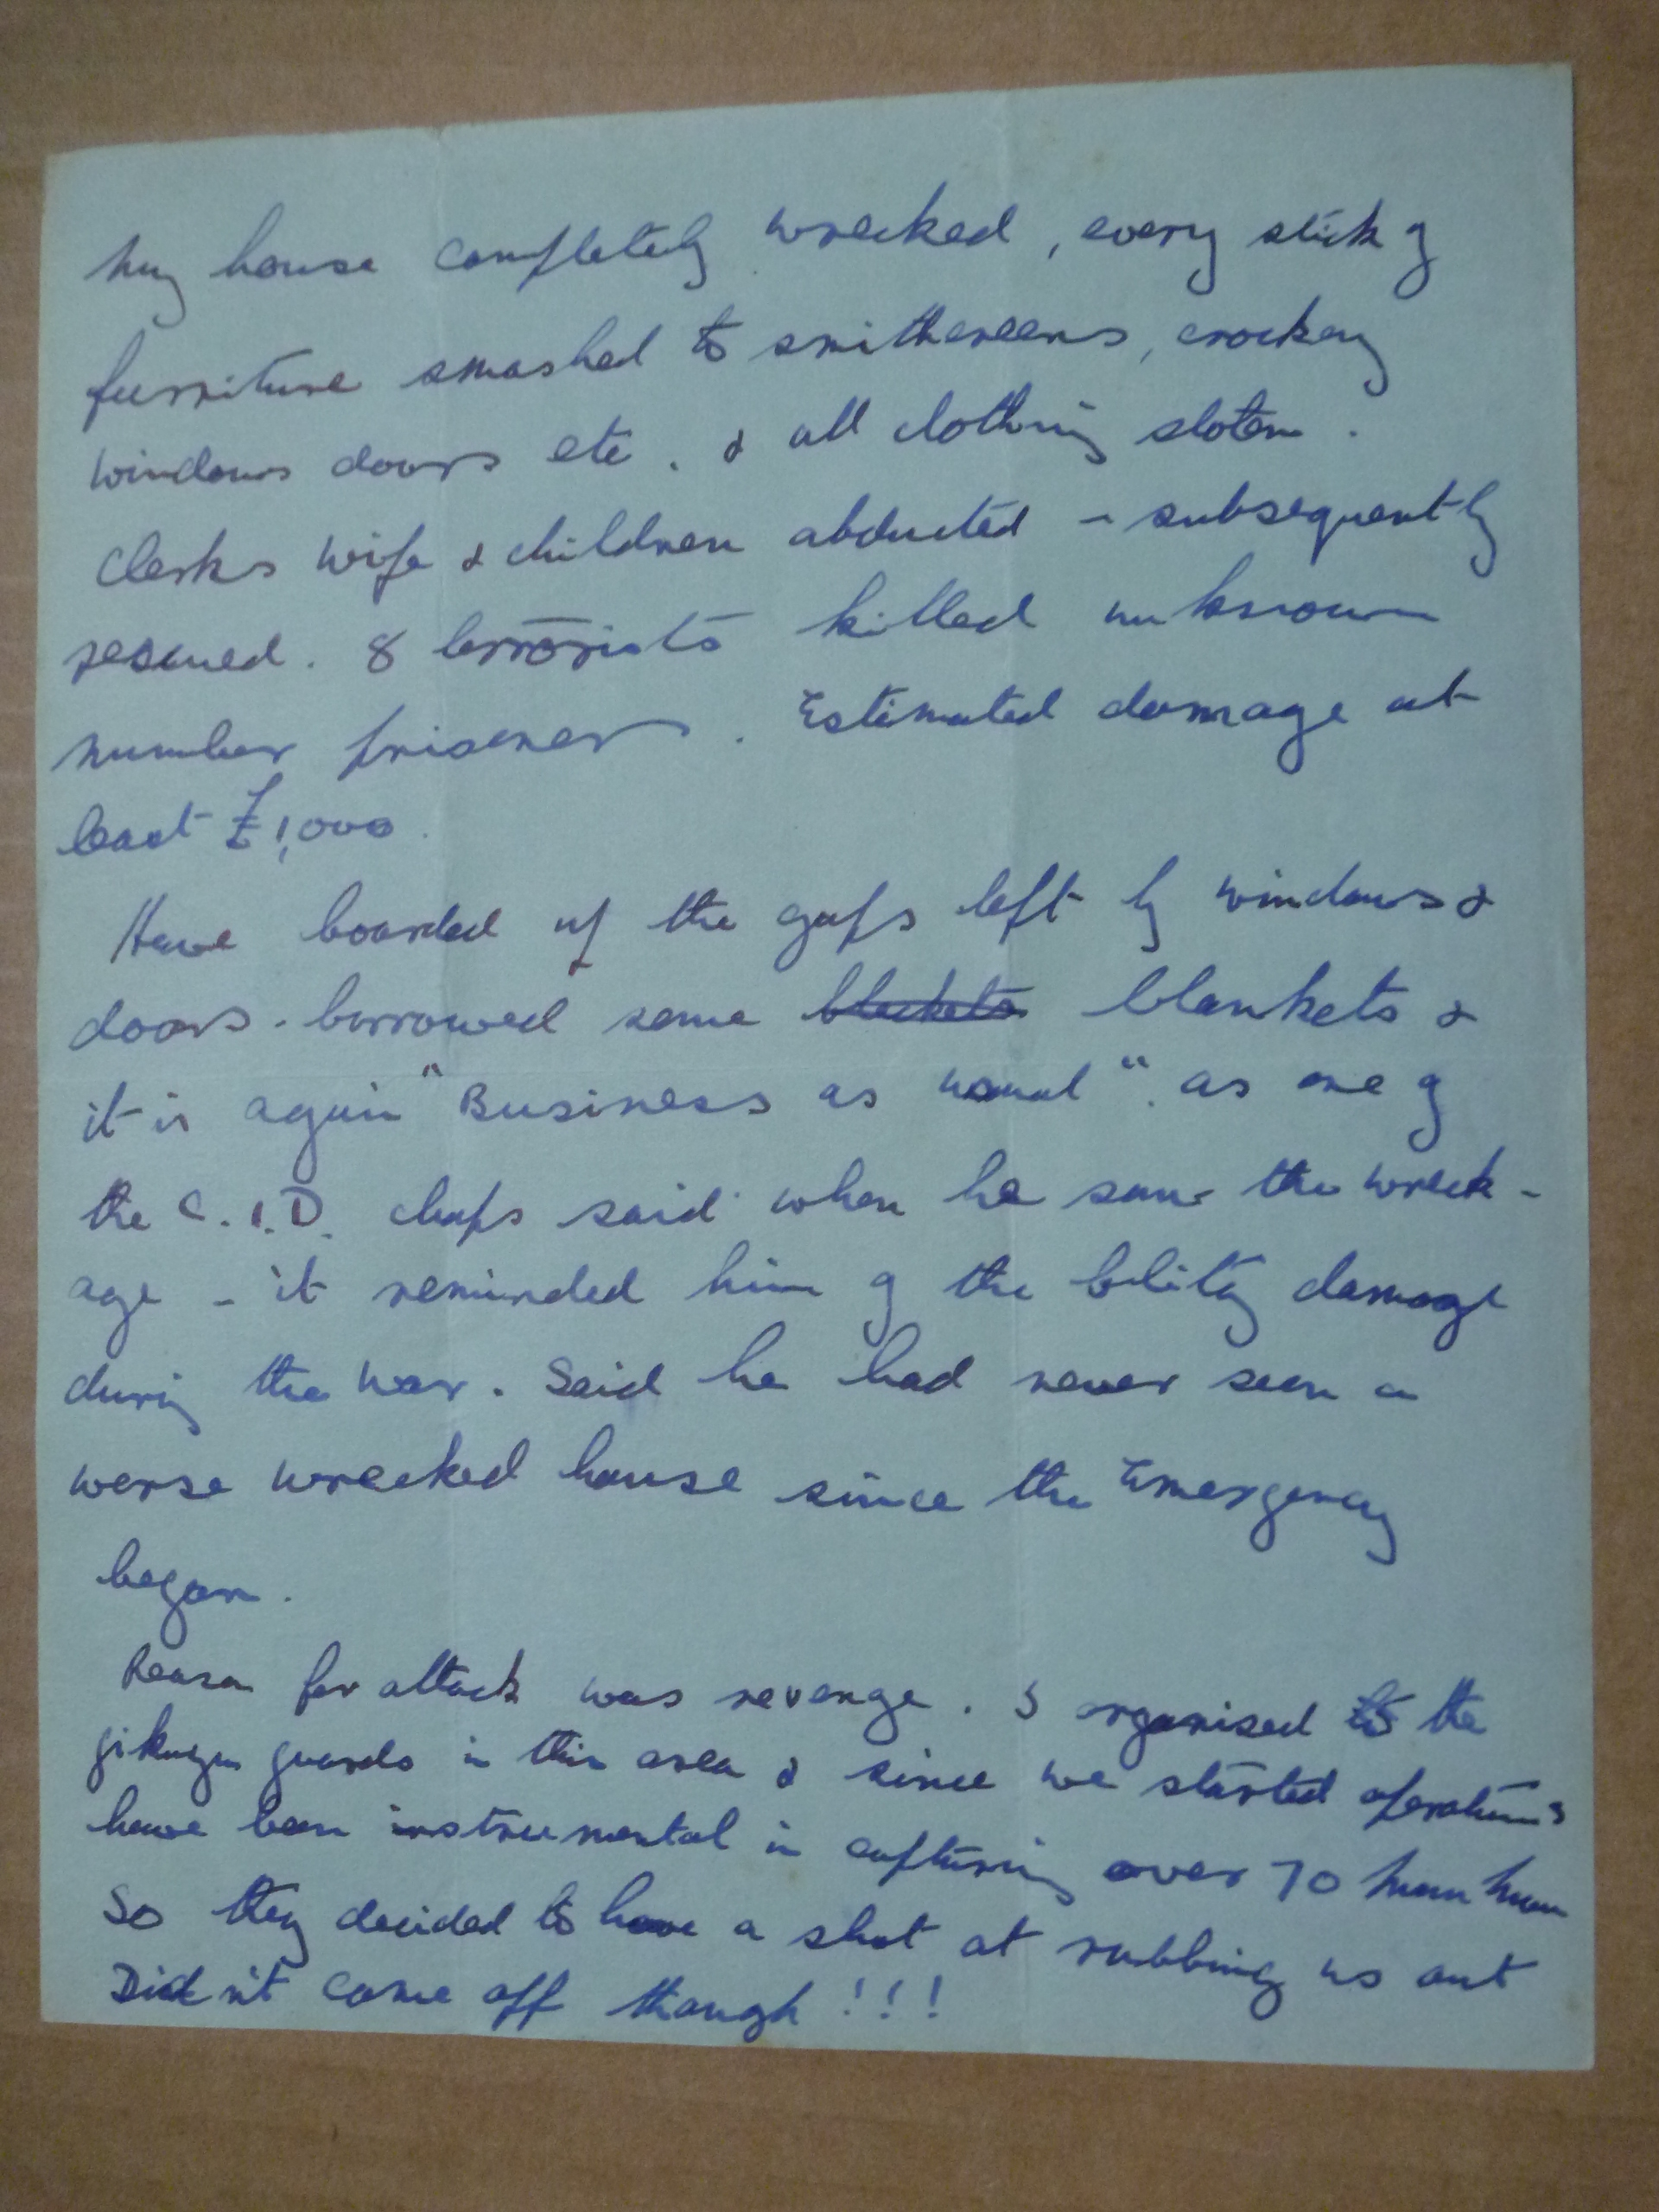 my house completely wrecked, every stick of
furniture smashed to smithereens, crockery
windows doors etc. & all clothing stolen.
Clerks wife & children abducted - subsequently
rescued. 8 terrorists killed unknown
number prisoners. Estimated damage at
least £1,000.
Have boarded up the gaps left by windows &
doors - borrowed some blankets &
it is again "Business as usual". as one of
the C.I.D. chaps said when he saw the wreck-
age - it reminded him of the blitz damage
during the war. Said he had never seen a
worse wrecked house since the Emergency
began.
Reason for attack was revenge. I organised the
gikuyu guards in this area & since we started operations
have been instrumental in capturing over 70 mau mau
So they decided to have a shot at rubbing us out
Didn't come off though!!!